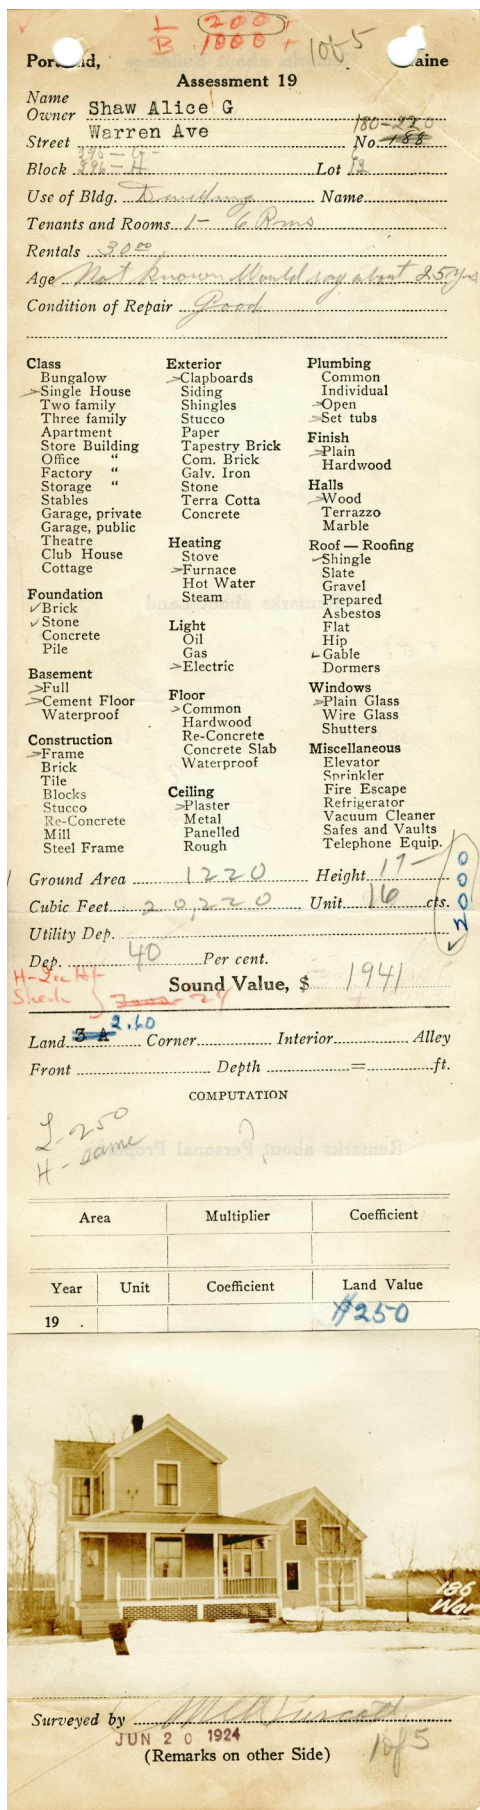 L 200 +
B 1000 +
1 of 5
Portland, Maine
Assessment 19
Name
Owner Shaw Alice G
180-220
Street Warren Ave No. 188
395-G-
Block 396-H Lot 12
Use of Bldg. Dwelling Name
Tenants and Rooms 1- 6 Rms
Rentals 30.00
Age Not known Would say about 25 yrs
Condition of Repair Good
Class
Bungalow
>Single House
Two family
Three family
Apartment
Store Building
Office "
Factory "
Storage "
Stables
Garage, private
Garage, public
Theatre
Club House
Cottage
Foundation
✓Brick
✓Stone
Concrete
Pile
Basement
>Full
>Cement Floor
Waterproof
Construction
>Frame
Brick
Tile
Blocks
Stucco
Re-Concrete
Mill
Steel Frame
Exterior
>Clapboards
Siding
Shingles
Stucco
Paper
Tapestry Brick
Com. Brick
Galv. Iron
Stone
Terra Cotta
Concrete
Heating
Stove
>Furnace
Hot Water
Steam
Light
Oil
Gas
>Electric
Floor
>Common
Hardwood
Re-Concrete
Concrete Slab
Waterproof
Ceiling
>Plaster
Metal
Panelled
Rough
Plumbing
Common
Individual
>Open
>Set tubs
Finish
>Plain
Hardwood
Halls
>Wood
Terrazzo
Marble
Roof — Roofing
✓Shingle
Slate
Gravel
Prepared
Asbestos
Flat
Hip
✓Gable
Dormers
Windows
>Plain Glass
Wire Glass
Shutters
Miscellaneous
Elevator
Sprinkler
Fire Escape
Refrigerator
Vacuum Cleaner
Safes and Vaults
Telephone Equip.
Ground Area 1220 Height 17-
Cubic Feet 20,220 Unit 16 cts.
2000
Utility Dep.
Dep. 40 Per cent.
Sound Value, $ 1941
Shed 24
2.60
Land 3 A Corner Interior Alley
Front Depth = ft.
COMPUTATION
L-250
H-same
?
Area Multiplier Coefficient
Year Unit Coefficient Land Value
19 . $250
186
War
Surveyed by
JUN 20 1924
(Remarks on other Side)
1 of 5